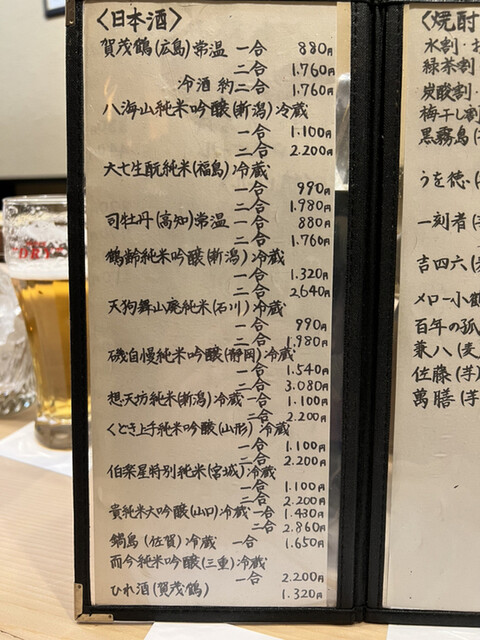 〈日本酒〉
賀茂鶴(広島)常温 一合 880円
二合 1.760円
冷酒 約二合 1.760円
八海山純米吟醸(新潟)冷蔵
一合 1.100円
二合 2.200円
大七生酛純米(福島)冷蔵
一合 990円
二合 1.980円
司牡丹(高知)常温 一合 880円
二合 1.760円
鶴齢純米吟醸(新潟)冷蔵
一合 1.320円
二合 2640円
天狗舞山廃純米(石川)冷蔵
一合 990円
二合 1.980円
磯自慢純米吟醸(静岡)冷蔵
一合 1.540円
二合 3.080円
想天坊純米(新潟)冷蔵 一合 1.100円
二合 2.200円
くどき上手純米吟醸(山形)冷蔵
一合 1.100円
二合 2.200円
伯楽星特別純米(宮城)冷蔵
一合 1.100円
二合 2.200円
貴純米大吟醸(山口)冷蔵 一合 1.430円
二合 2.860円
鍋島(佐賀)冷蔵 一合 1.650円
而今純米吟醸(三重)冷蔵
一合 2.200円
ひれ酒(賀茂鶴) 1.320円
〈焼酎
水割・お
緑茶割
炭酸割・
梅干し割
黒霧島(
うを徳・(
一刻者(
吉四六(
メロー小鶴
百年の孤
兼八(麦
佐藤(芋
萬膳(芋